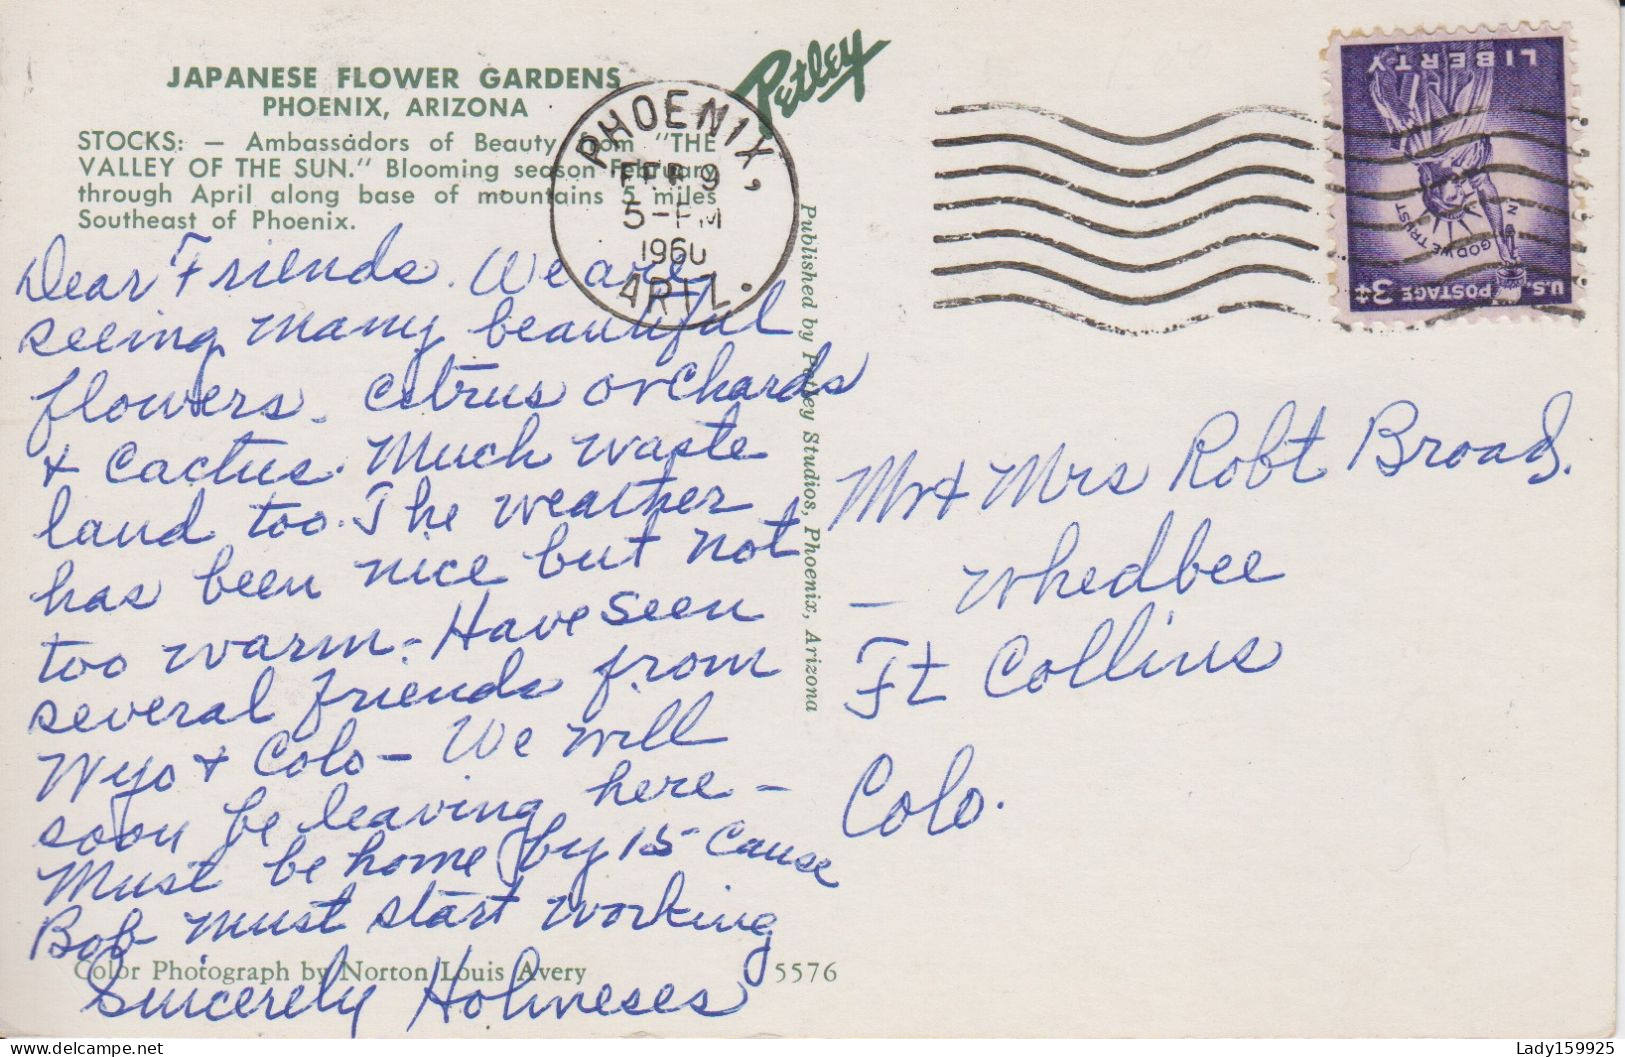 JAPANESE FLOWER GARDENS
PHOENIX, ARIZONA
STOCKS: — Ambassadors of Beauty from "THE
VALLEY OF THE SUN." Blooming season February
through April along base of mountains 5 miles
Southeast of Phoenix.
Petley
PHOENIX,
FEB 9
5-PM
1960
ARIZ.
LIBERTY
IN GOD WE TRUST
U.S. POSTAGE 3¢
Dear Friends. We are
seeing many beautiful
flowers. Citrus orchards
+ Cactus. Much waste
land too. The weather
has been nice but not
too warm - Have seen
several friends from
Wyo + Colo - We will
soon be leaving here -
Must be home by 15 cause
Bob must start working
Sincerely Holmeses
Published by Petley Studios, Phoenix, Arizona
Mr + Mrs Robt Broad.
— Whedbee
Ft Collins
Colo.
Color Photograph by Norton Louis Avery
5576
delcampe.net
Lady159925